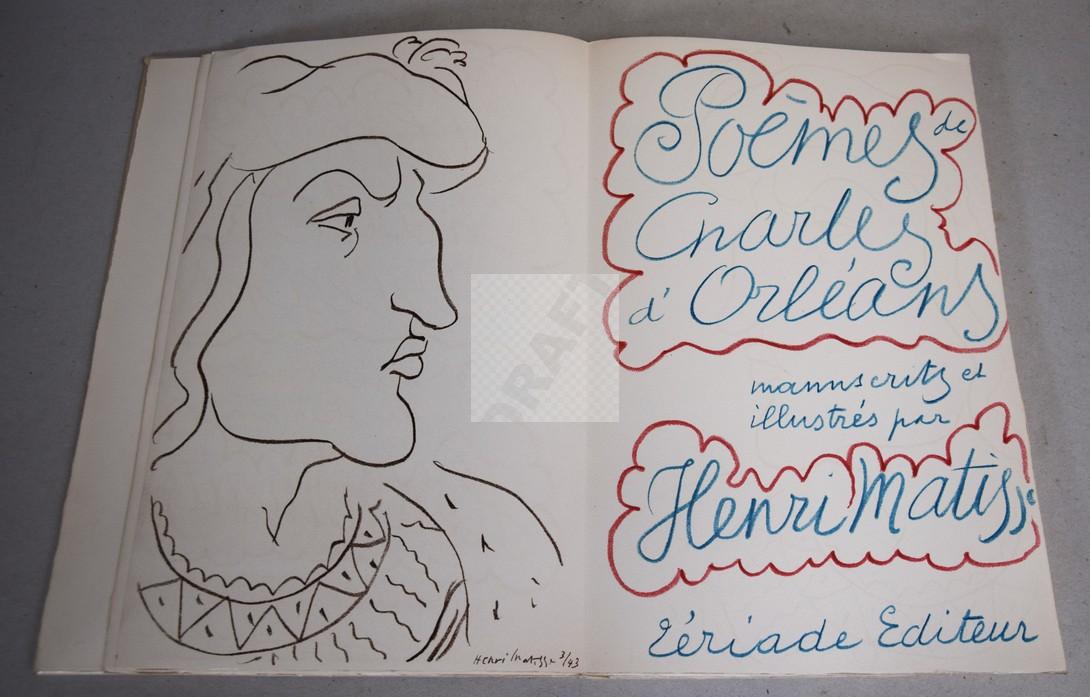 Henri Matisse 3/43
Poèmes de
Charles
d'Orléans
manuscrits et
illustrés par
Henri Matisse
Tériade Editeur
DRAFT